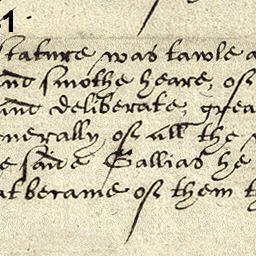 1
stature was tawle a
and smothe heare, of
and deliberate, grea
enerally of all the
e saide Gallias he
at became of them th